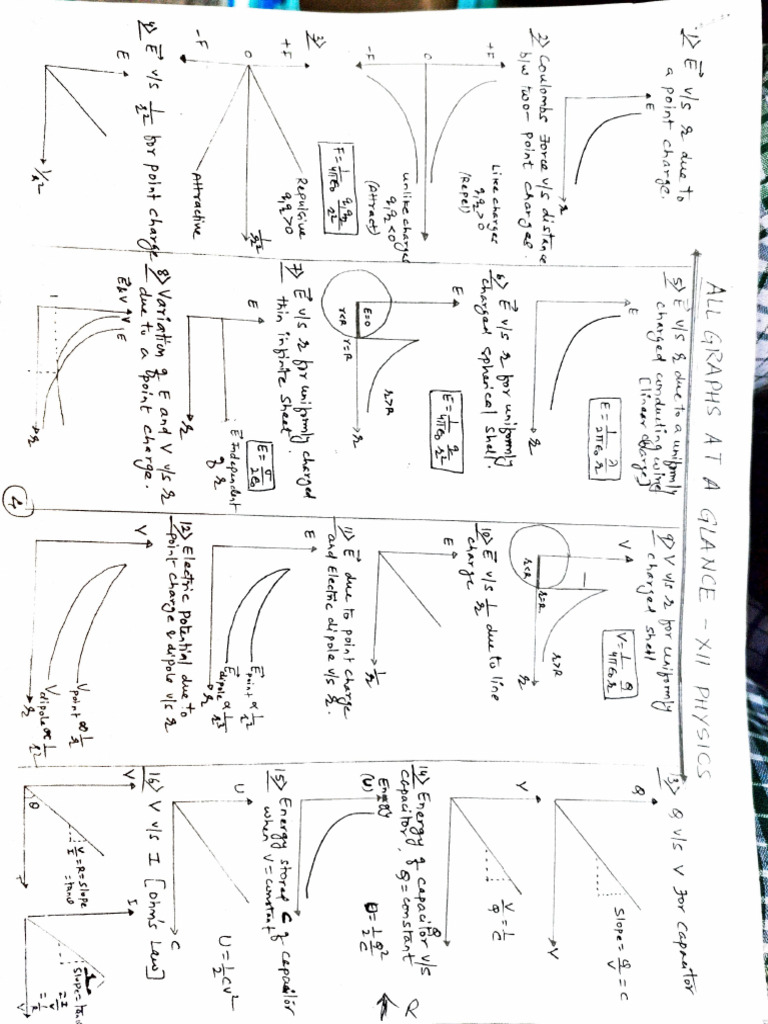 ALL GRAPHS AT A GLANCE - XII PHYSICS
1> E v/s r due to
a point charge.
E
r
2> Coulombs Force v/s distance
b/w two-point charges.
+F
O
-F
Like charges
q₁q₂>0
(Repel)
unlike charges
q₁q₂<0
(Attract)
F = 1/4πε₀ q₁q₂/r²
3>
+F
O
-F
1/r²
Repulsive
q₁q₂>0
Attractive
4> E v/s 1/r² for point charge
E
1/r²
5> E v/s r due to a uniformly
charged conducting wire
[linear charge]
E
r
E = 1/2πε₀ λ/r
6> E v/s r for uniformly
charged spherical shell.
E
E=0
r<R
r=R
r>R
r
E = 1/4πε₀ q/r²
7> E v/s r for uniformly charged
thin infinite sheet.
E
r
E = σ/2ε₀
E independent
of r
8> Variation of E and V v/s r
due to a point charge.
E&V
V
E
r
9> V v/s r for uniformly
charged shell
V
r<R
r=R
r>R
r
V = 1/4πε₀ Q/r
10> E v/s 1/r due to line
charge
E
1/r
11> E due to point charge
and Electric dipole v/s r.
E
E point ∝ 1/r²
E dipole ∝ 1/r³
r
12> Electric potential due to
point charge & dipole v/s r
V
V point ∝ 1/r
V dipole ∝ 1/r²
r
13> Q v/s V for capacitor
Q
V
Slope = Q/V = C
V
Q
V/Q = 1/C
14> Energy of capacitor v/s
capacitor, Q = constant
Energy
(U)
C
U = 1/2 Q²/C
15> Energy stored of capacitor
when V = constant
U
C
U = 1/2 CV²
16> V v/s I [Ohm's Law]
V
θ
V/I = R = slope
= tanθ
I
V
Slope = tanθ
= I/V
= 1/R
4